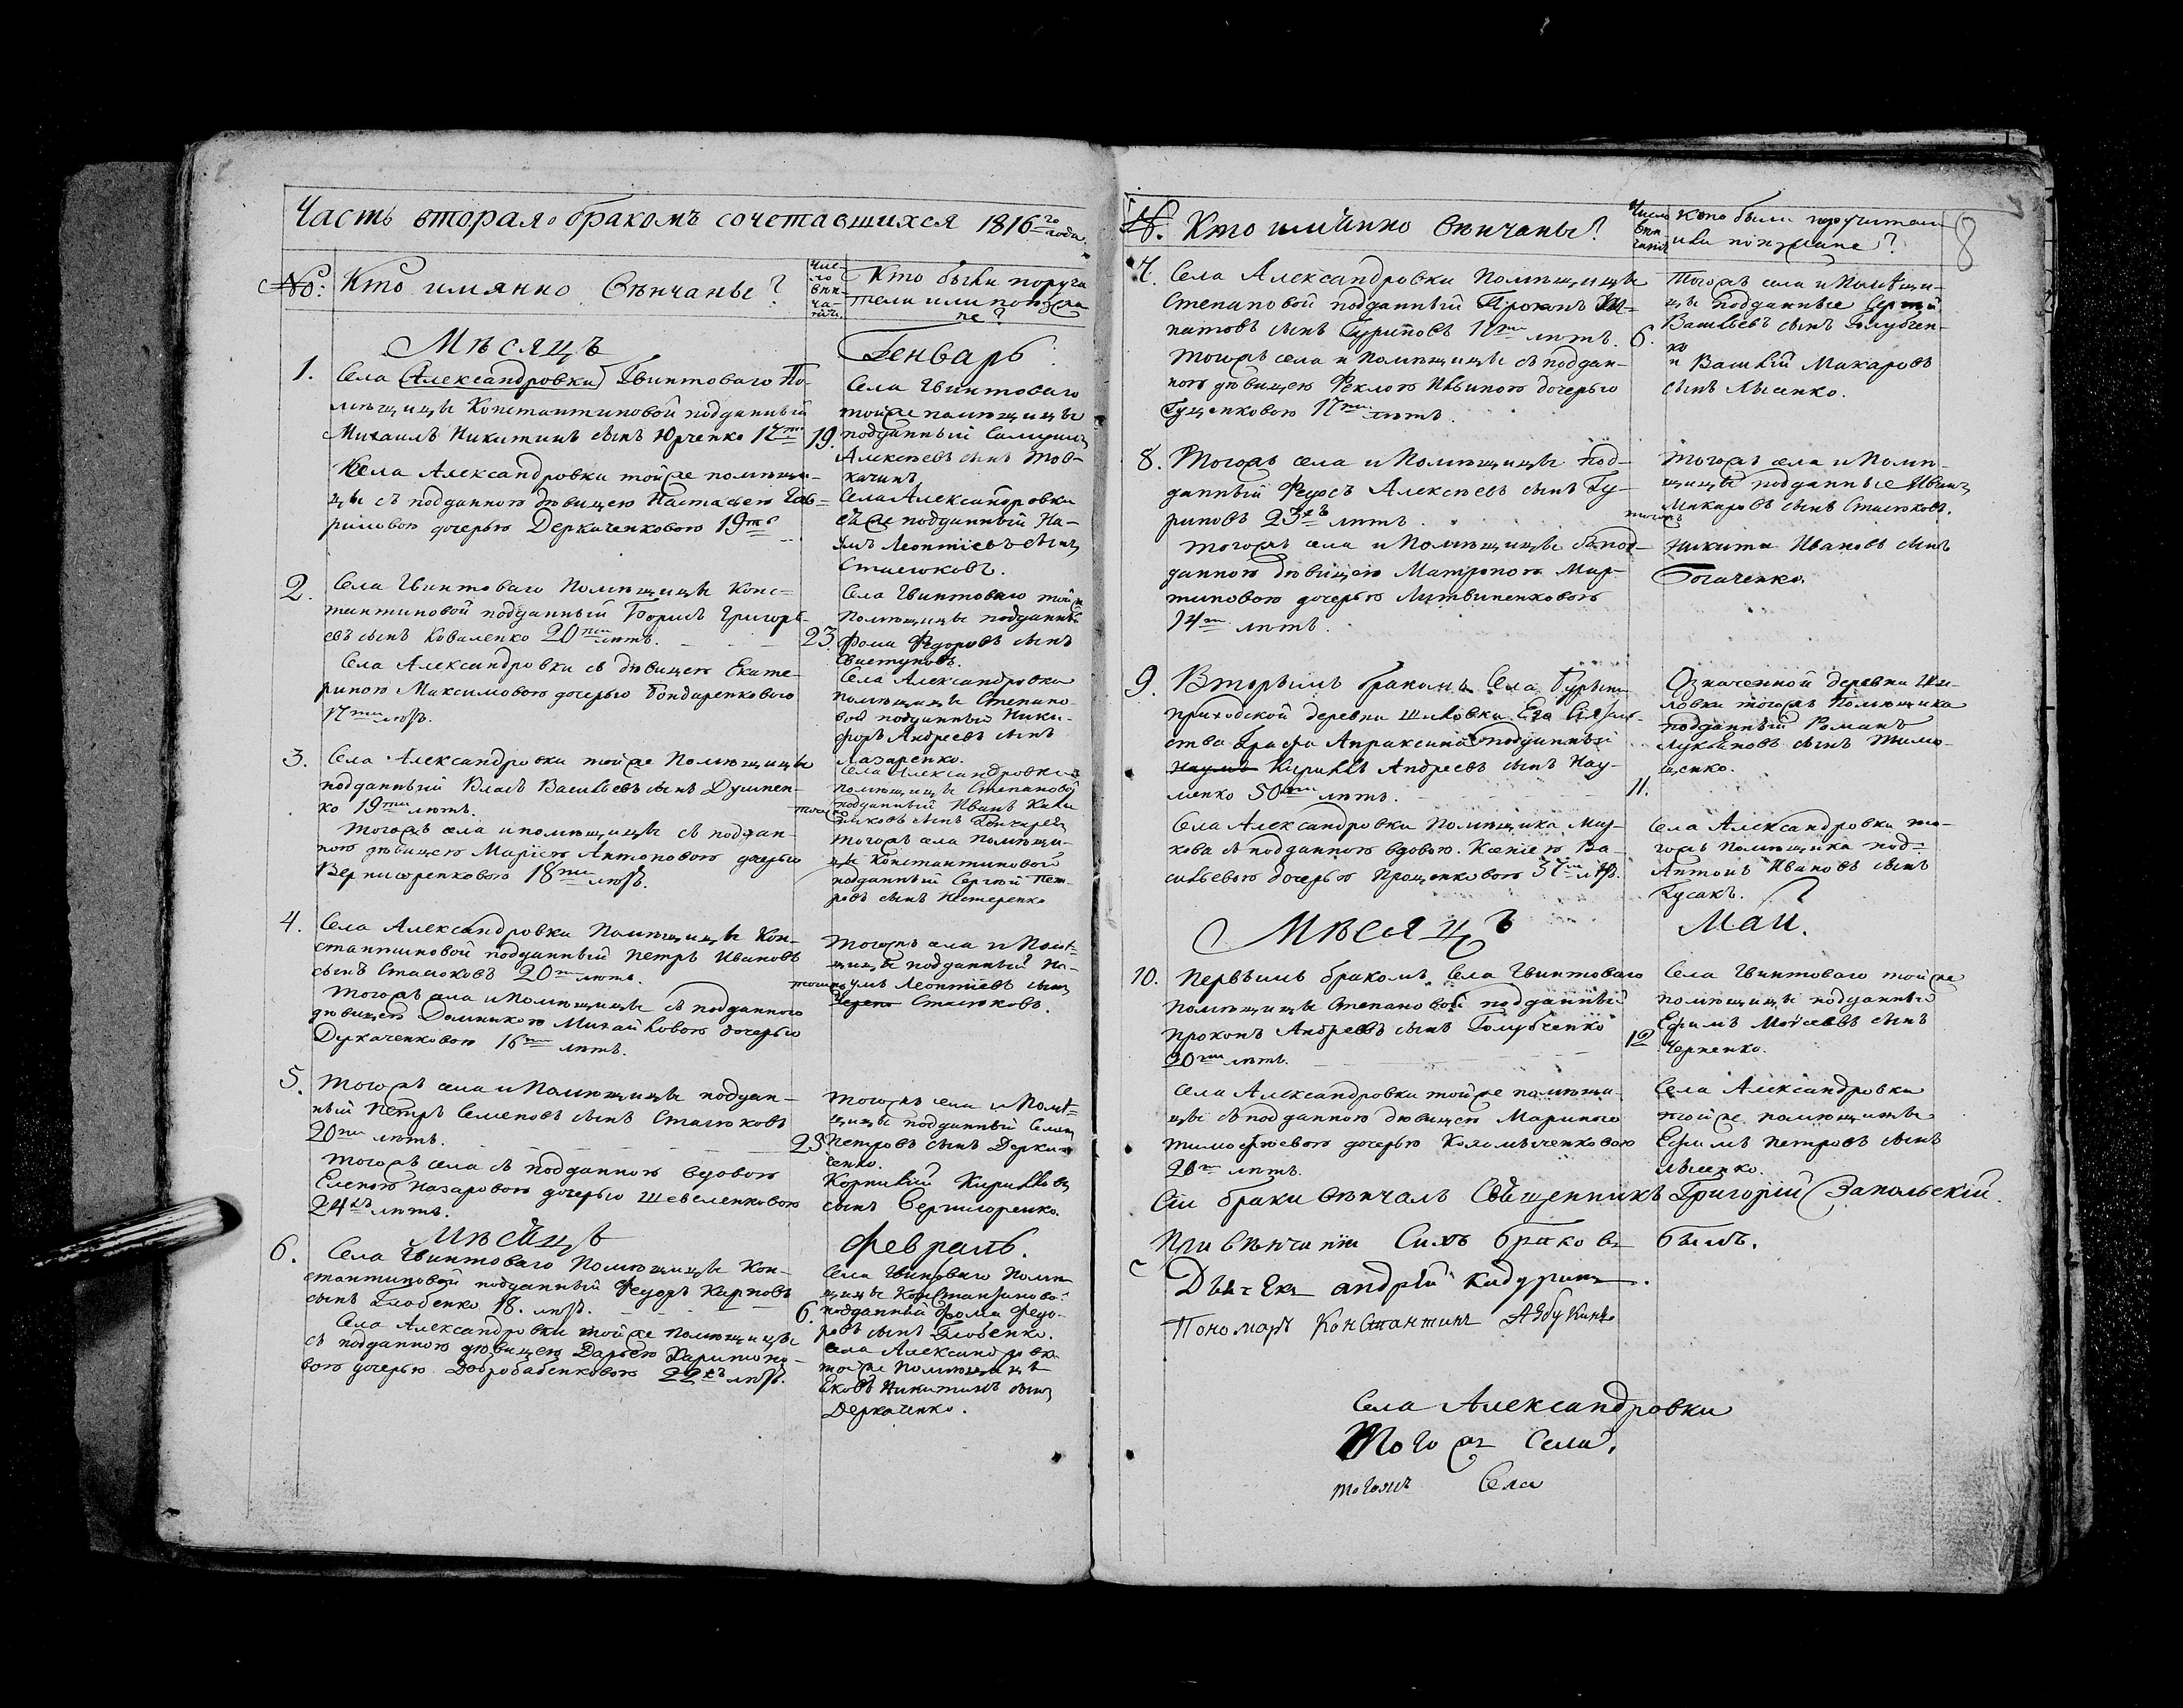 Часть вторая о бракомъ сочетавшихся 1816го года.
№: Кто имянно Венчаны?
Чис-
ло
вен-
ча-
нія.
Кто были поручи
тели или поезжа
не?
Мѣсяцъ
Генварь
1. Села Александровки Гвинтоваго По-
мѣщицы Константиновой подданный
Михаилъ Никитинъ сынъ Юрченко 17ти
19.
Села Александровки той же помѣщи-
цы съ подданною дѣвицею Настасьею Гав-
риловою дочерью Деркаченковою 19ть
Села Гвинтоваго
той же помѣщицы
подданный
Алексѣевъ сынъ Тов-
качинъ
Села Александровки
ей же подданный На-
умъ Леонтіевъ сынъ
Стасюковъ.
2. Села Гвинтоваго Помѣщицы Конс-
тантиновой подданный Борисъ Григорь-
евъ сынъ Коваленко 20ти лѣтъ.
23.
Села Александровки съ дѣвицею Екате-
риною Максимовою дочерью Бондаренковою
17ти лѣтъ.
Села Гвинтоваго той же
Помѣщицы подданный
Фома Федоровъ сынъ
Свистуновъ.
Села Александровки
помѣщицы Степано
вой подданный Ники-
форъ Андреевъ сынъ
Лазаренко.
3. Села Александровки той же Помѣщицы
подданный Власъ Васильевъ сынъ
ко 19ти лѣтъ.
Тогожъ села и помѣщицы съ поддан-
ною дѣвицею Маріею Антоновою дочерью
Вернигоренковою 18ти лѣтъ.
Села Александровки
помѣщицы Степановой
подданный Иванъ
сынъ
тогожъ села помѣщи-
цы Константиновой
подданный Сергѣй Пет-
ровъ сынъ Нестеренко
4. Села Александровки Помѣщицы Кон-
стантиновой подданный Петръ Ивановъ
сынъ Стасюковъ 20ти лѣтъ.
Тогожъ села и Помѣщицы съ подданною
дѣвицею Домникою Михайловою дочерью
Деркаченковою 16ти лѣтъ.
Тогожъ села и Помѣ-
щицы подданный На-
умъ Леонтіевъ сынъ
Стасюковъ.
5. Тогожъ села и Помѣщицы поддан-
ный Петръ Семеновъ сынъ Стасюковъ
20ти лѣтъ.
25
Тогожъ села съ подданною вдовою
Еленою Назаровою дочерью Шевеленковою
24хъ лѣтъ.
Тогожъ села и Помѣ-
щицы подданный Семенъ
Петровъ сынъ Дерка-
ченко.
Корнилій Кирилловъ
сынъ Вернигоренко.
Мѣсяцъ
Февраль.
6. Села Гвинтоваго Помѣщицы Кон-
стантиновой подданный Федоръ Карповъ
сынъ Глобенко 18. лѣтъ.
6.
Села Александровки той же помѣщицы
съ подданною дѣвицею Дарьею Харитоно-
вою дочерью Добробабенковою 22хъ лѣтъ.
Села Гвинтоваго Помѣ
щицы Константиновой
подданный Фома Федо-
ровъ сынъ Глобенко.
села Александровки
той же Помѣщицы
Ековъ Никитинъ сынъ
Деркаченко.
№. Кто имянно венчаны?
Число
вен
чанія
Кто были поручители
или поезжане?
8
7. Села Александровки Помѣщицы
Степановой подданный Прокопъ
патовъ сынъ Гуриновъ лѣтъ.
6.
Тогожъ села и Помѣщицы съ поддан-
ною дѣвицею Феклою Ильиною дочерью
Гущенковою 17ти лѣтъ.
Тогожъ села и Помѣщи-
цы подданные Сергѣй
Васильевъ сынъ Голубчен-
ко
и Василій Макаровъ
сынъ Лысенко.
8. Тогожъ села и Помѣщицы под-
данный Федосъ Алексѣевъ сынъ Гу-
риновъ 23хъ лѣтъ.
тогожъ
Тогожъ села и Помѣщицы съ под-
данною дѣвицею Матроною Мар-
тиновою дочерью Литвиненковою
лѣтъ.
Тогожъ села и Помѣ-
щицы подданные Иванъ
Макаровъ сынъ Стасюковъ.
Никита Ивановъ сынъ
Богаченко.
9. Вторымъ бракомъ Села
приходской деревни Шиловки Его Сіятель-
ства Графа Апраксина подданный
Наумъ Кириллъ Андреевъ сынъ Нау-
менко 50ти лѣтъ.
11.
Села Александровки Помѣщика Мар-
кова съ подданною вдовою Ксеніею Ва-
сильевою дочерью Проценковою 37ми лѣтъ.
Означенной деревни Ши-
ловки тогожъ Помѣщика
подданный Романъ
Лукьяновъ сынъ Тимо-
щенко.
Села Александровки то-
гожъ Помѣщика под:
Антонъ Ивановъ сынъ
Гусакъ.
Мѣсяцъ
Май.
10. Первымъ бракомъ Села Гвинтоваго
помѣщицы Степановой подданный
Прокопъ Андреевъ сынъ Голубченко
20ти лѣтъ.
12
Села Александровки той же помѣщи-
цы съ подданною дѣвицею Мариною
Тимофѣевою дочерью Коломѣченковою
20ти лѣтъ.
Села Гвинтоваго той же
помѣщицы подданный
Ефимъ Моисеевъ сынъ
Черненко.
Села Александровки
той же помѣщицы
Ефимъ Петровъ сынъ
Лысенко.
Сіи браки венчалъ Священникъ Григорій Запольскій.
При Венчаніи Сихъ браковъ былъ.
Дьячекъ андрѣй кадуринъ.
Пономарь Константинъ Азбукинъ
Села Александровки
Тогожъ Села,
тогожъ Села